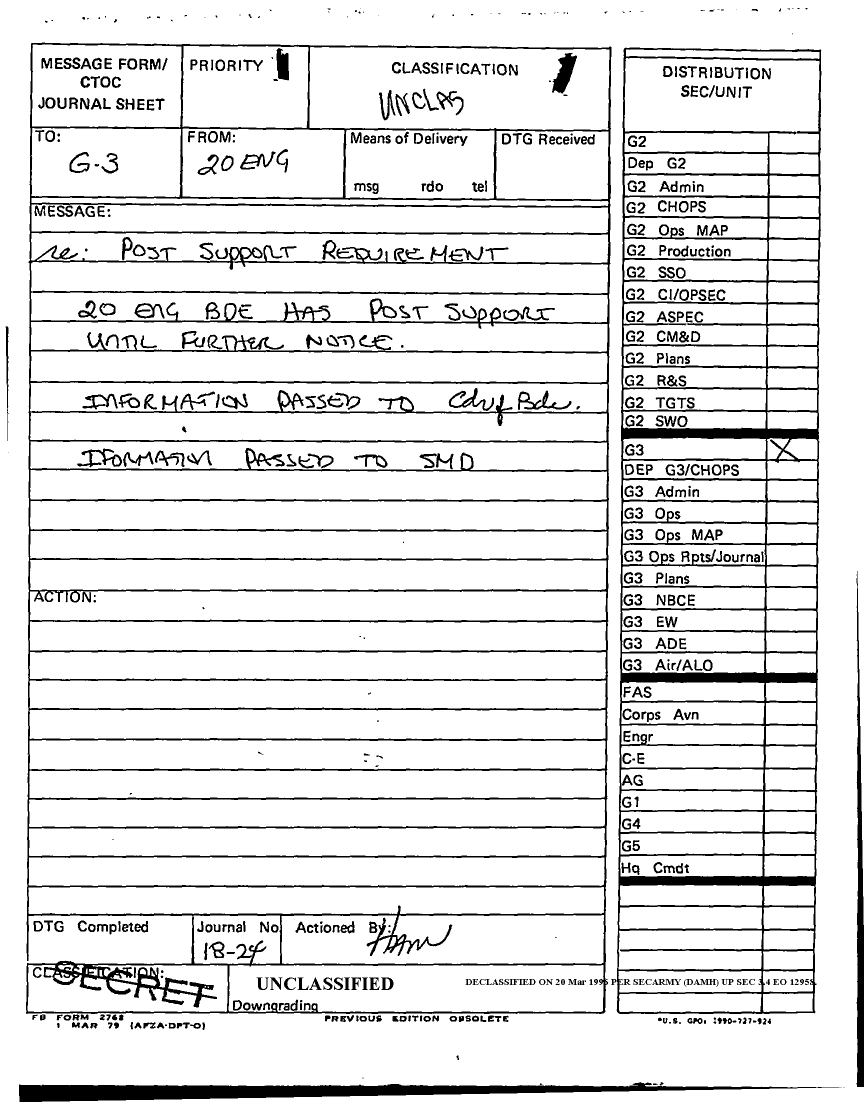 MESSAGE FORM/
CTOC
JOURNAL SHEET
PRIORITY
CLASSIFICATION
UNCLAS
TO:
G-3
FROM:
20 ENG
Means of Delivery
msg rdo tel
DTG Received
MESSAGE:
re: POST SUPPORT REQUIREMENT
20 ENG BDE HAS POST SUPPORT
UNTIL FURTHER NOTICE.
INFORMATION PASSED TO Bde.
IFORMATION PASSED TO SMD
ACTION:
DTG Completed
Journal No
18-24
Actioned By:
CLASSIFICATION:
SECRET
UNCLASSIFIED
Downgrading
DECLASSIFIED ON 20 Mar 1996 PER SECARMY (DAMH) UP SEC 3.4 EO 12958
FB FORM 2768
1 MAR 79 (AFZA-DPT-O)
PREVIOUS EDITION OBSOLETE
DISTRIBUTION
SEC/UNIT
G2
Dep G2
G2 Admin
G2 CHOPS
G2 Ops MAP
G2 Production
G2 SSO
G2 CI/OPSEC
G2 ASPEC
G2 CM&D
G2 Plans
G2 R&S
G2 TGTS
G2 SWO
G3 X
DEP G3/CHOPS
G3 Admin
G3 Ops
G3 Ops MAP
G3 Ops Rpts/Journal
G3 Plans
G3 NBCE
G3 EW
G3 ADE
G3 Air/ALO
FAS
Corps Avn
Engr
C-E
AG
G1
G4
G5
Hq Cmdt
*U.S. GPO: 1990-727-924